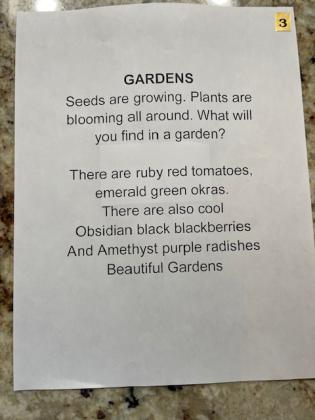 3
GARDENS
Seeds are growing. Plants are
blooming all around. What will
you find in a garden?
There are ruby red tomatoes,
emerald green okras.
There are also cool
Obsidian black blackberries
And Amethyst purple radishes
Beautiful Gardens